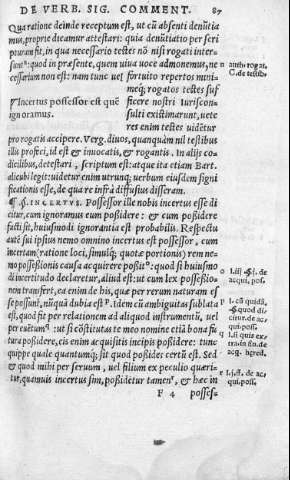 DE VERB. SIG. COMMENT. 87
Qua ratione deinde receptum est, ut cū absenti denūtia
mus, proprie dicamur attestari: quia denūtiatio per scri
pturam fit, in qua necessario testes nō nisi rogati inter-
sunt: quod in præsente, quem uiua uoce admonemus, ne
cessarium non est: nam tunc uel fortuito repertos mini-
meq; rogatos testes suf
ficere nostri iuriscon-
sulti existimarunt, uete
res enim testes uidētur
Incertus possessor est quē
ignoramus.
pro rogatis accipere. Verg. diuos, quanquàm nil testibus
illis profeci, id est & inuocatis, & rogantis. In alijs co-
dicillus, detestari, scriptum est: atque ita etiam Bart.
alicubi legit: uidetur enim utrunq; uerbum eiusdem signi
ficationis esse, de qua re infrà diffusius disseram.
INCERTVS. Possessor ille nobis incertus esse di
citur, cum ignoramus eum poßidere: & cum poßidere
facti sit, huiusmodi ignorantia est probabilis. Respectu
autē sui ipsius nemo omnino incertus est possessor, cum
incertam (ratione loci, simulq; quotæ portionis) rem ne-
mo poßeßionis causa acquirere poßit: quod si huiusmo
di incertitudo declaretur, aliud est: ut cum lex possessio-
nem transfert, ea enim de his, quæ per rerum naturam es
se possunt, nūquā dubia est. Idem cū ambiguitas sublata
est, quod fit per relationem ad aliquod instrumentū, uel
per euētum: ut si cōstitutas te meo nomine etiā bona fu
tura poßidere, eis enim acquisitis incipis poßidere: tunc
quippe quale quantumq; sit quod poßides certū est. Sed
& quod mihi per seruum, uel filium ex peculio quæri-
tur, quamuis incertus sim, poßidetur tamen, & hæc in
F 4 posses-
n autē rogat.
C. de testib.
acqui. pos.
l. si quis ex-
acq. hered.
qui. pos.